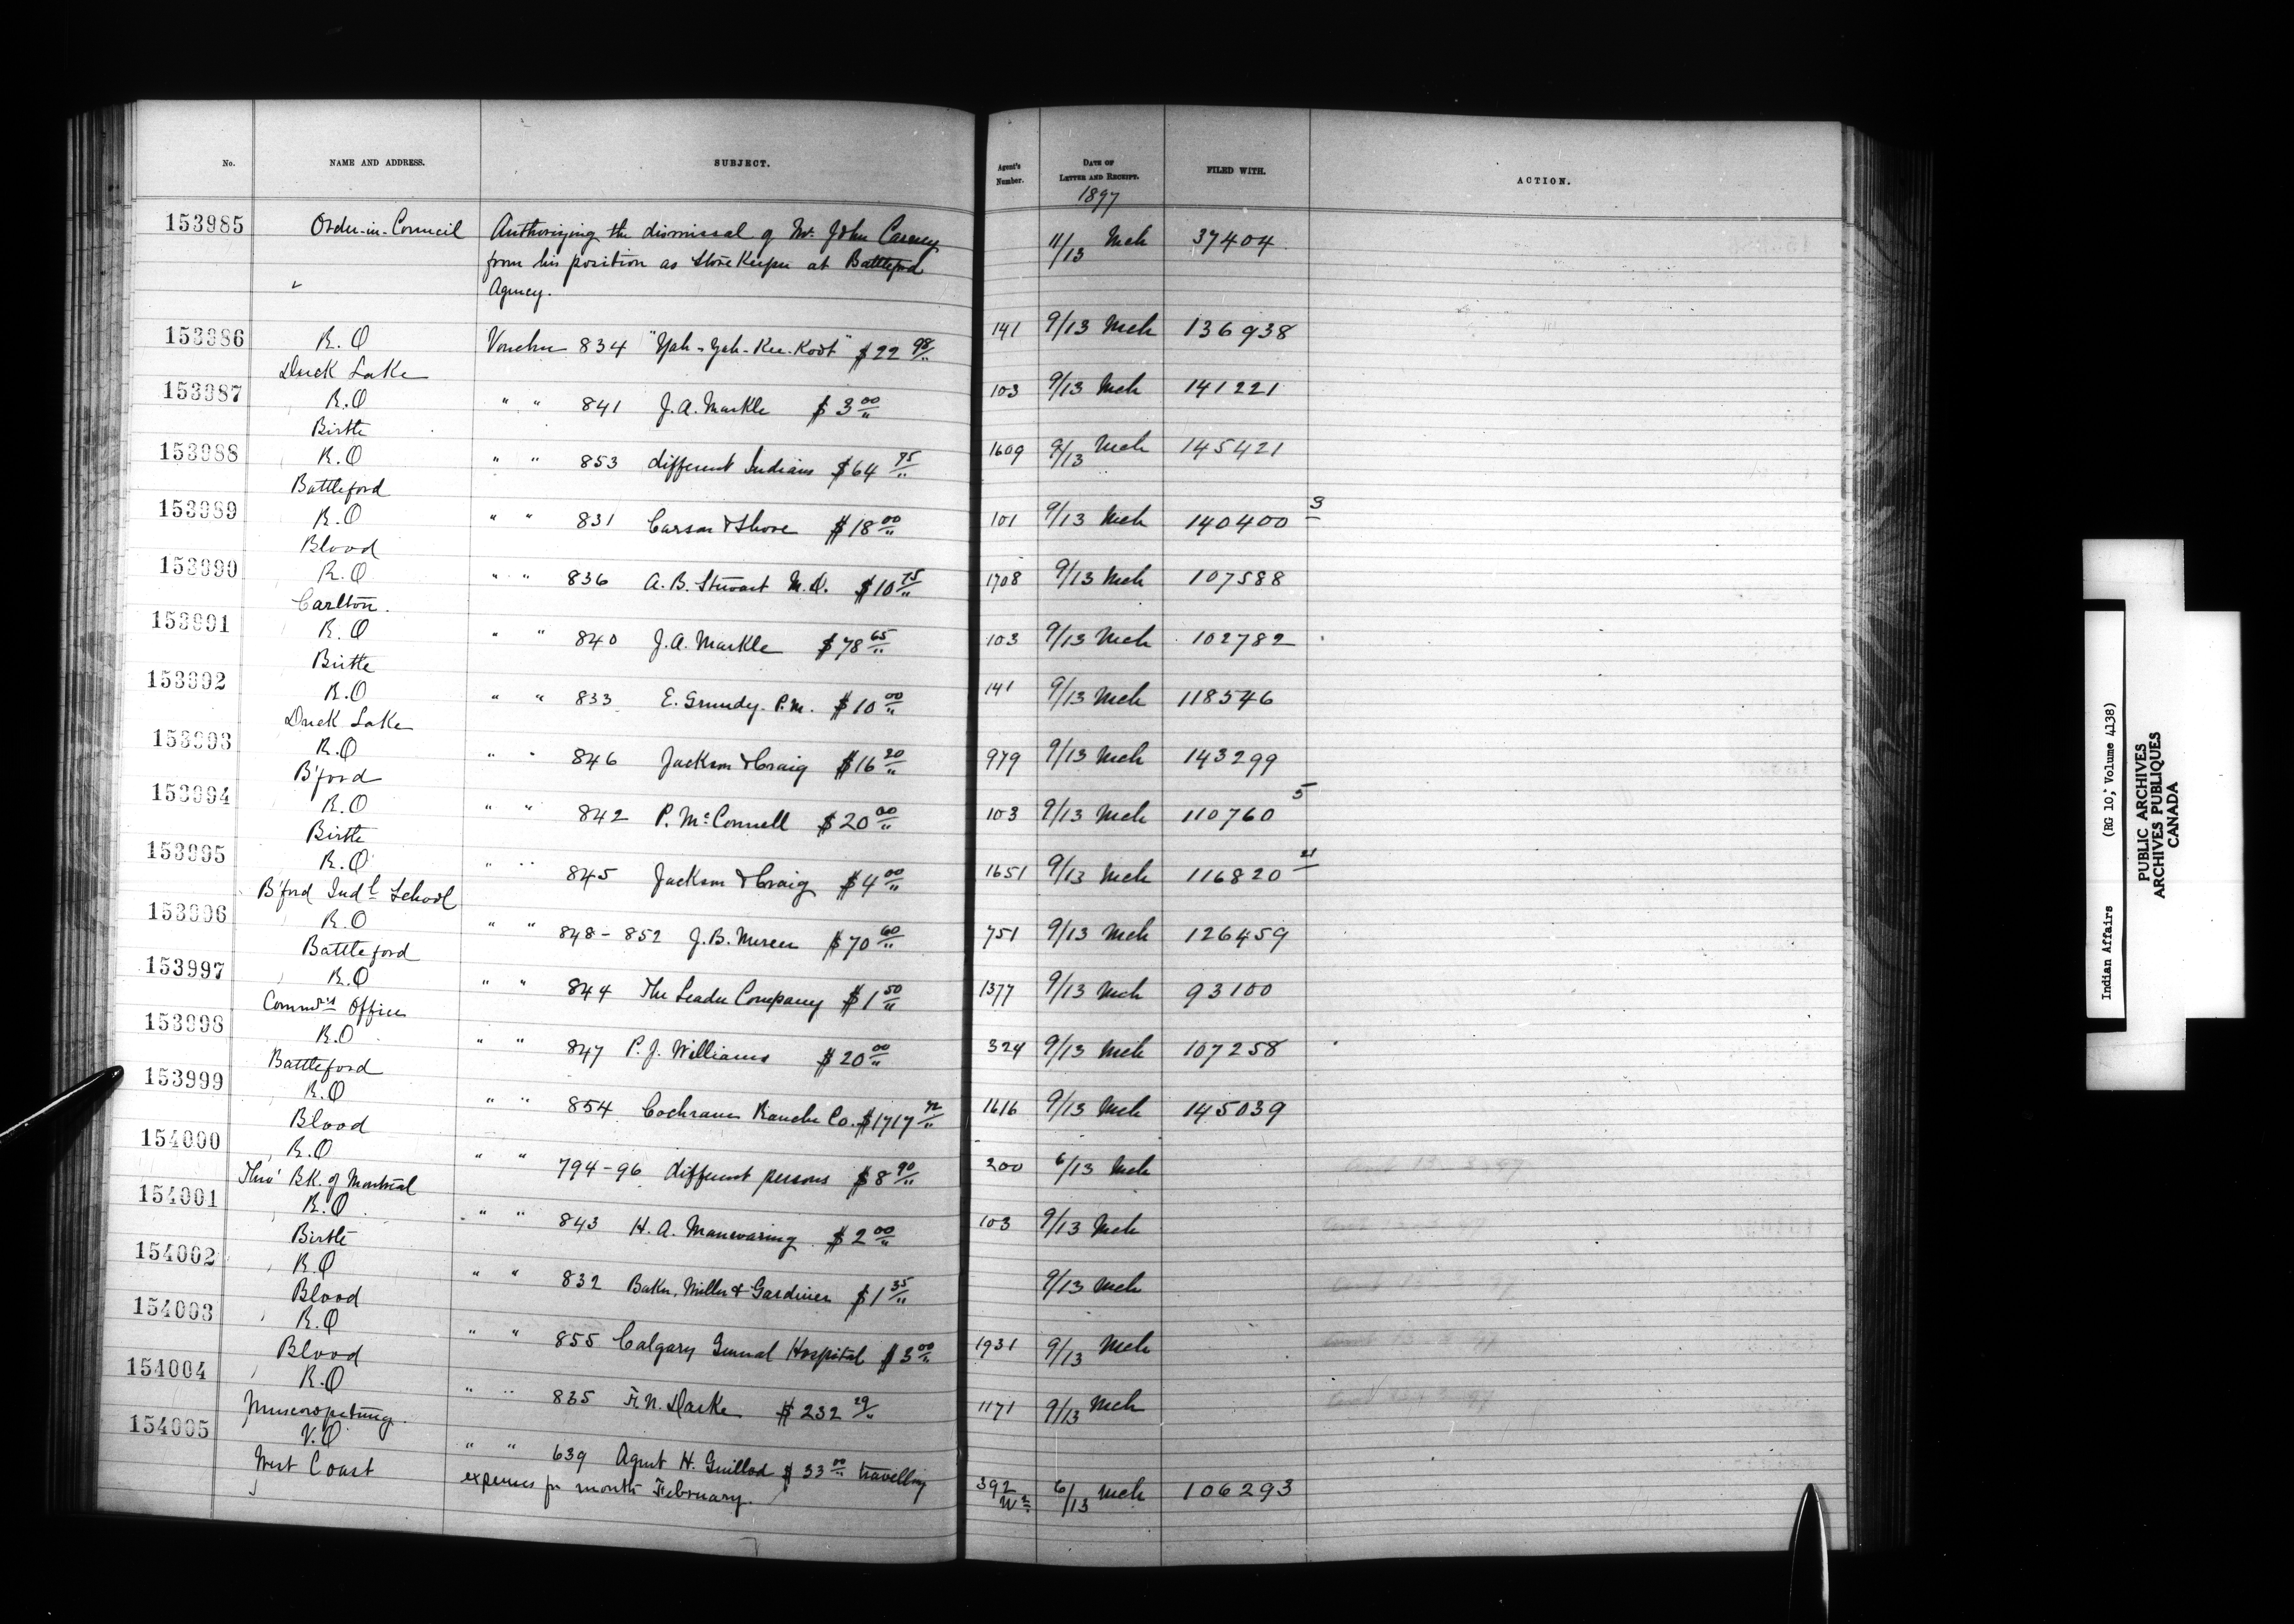 No. NAME AND ADDRESS. SUBJECT. Agent's Number. DATE OF LETTER AND RECEIPT. FILED WITH. ACTION.
1897
153985 Order-in-Council Authorizing the dismissal of Mr. John Carney 11/13 Mch 37404
from his position as Store Keeper at Battleford
" Agency.
153986 R.O Voucher 834 "Yah-Yah-Kee-Koot" $22 98/" 141 9/13 Mch 136938
Duck Lake
153987 R.O " " 841 J.A. Markle $3 00/" 103 9/13 Mch 141221
Birtle
153988 R.O " " 853 different Indians $64 75/" 1609 9/13 Mch 145421
Battleford
153989 R.O " " 831 Carson & Shore $18 00/" 101 9/13 Mch 140400 3
Blood
153990 R.O " " 836 A.B. Stewart M.D. $10 75/" 1708 9/13 Mch 107588
Carlton.
153991 R.O " " 840 J.A. Markle $78 65/" 103 9/13 Mch 102782
Birtle
153992 R.O " " 833 E. Grundy. P.M. $10 00/" 141 9/13 Mch 118546
Duck Lake
153993 R.O " " 846 Jackson & Craig $16 20/" 979 9/13 Mch 143299
B'ford
153994 R.O " " 842 P. McConnell $20 00/" 103 9/13 Mch 110760 5
Birtle
153995 R.O " " 845 Jackson & Craig $4 00/" 1651 9/13 Mch 116820 21
B'ford Indl School
153996 R.O " " 848-852 J.B. Mercer $70 60/" 751 9/13 Mch 126459
Battleford
153997 R.O " " 844 The Leader Company $1 50/" 1377 9/13 Mch 93100
Commr's Office
153998 R.O " " 847 P.J. Williams $20 00/" 324 9/13 Mch 107258
Battleford
153999 R.O " " 854 Cochrane Ranche Co. $1717 72/" 1616 9/13 Mch 145039
Blood
154000 R.O " " 794-96 different persons $8 90/" 200 6/13 Mch
Thro' BK. of Montreal
154001 R.O " " 843 H.A. Manwaring $2 00/" 103 9/13 Mch
Birtle
154002 R.O " " 832 Baker, Miller & Gardiner $1 35/" 9/13 Mch
Blood
154003 R.O " " 855 Calgary General Hospital $3 00/" 1931 9/13 Mch
Blood
154004 R.O " " 835 F.N. Darke $232 29/" 1171 9/13 Mch
Muscowpetung.
154005 V.O " " 639 Agent H. Guillod $33 00/" travelling 392 6/13 Mch 106293
West Coast expenses for month February.
Indian Affairs (RG 10, Volume 4138)
PUBLIC ARCHIVES
ARCHIVES PUBLIQUES
CANADA